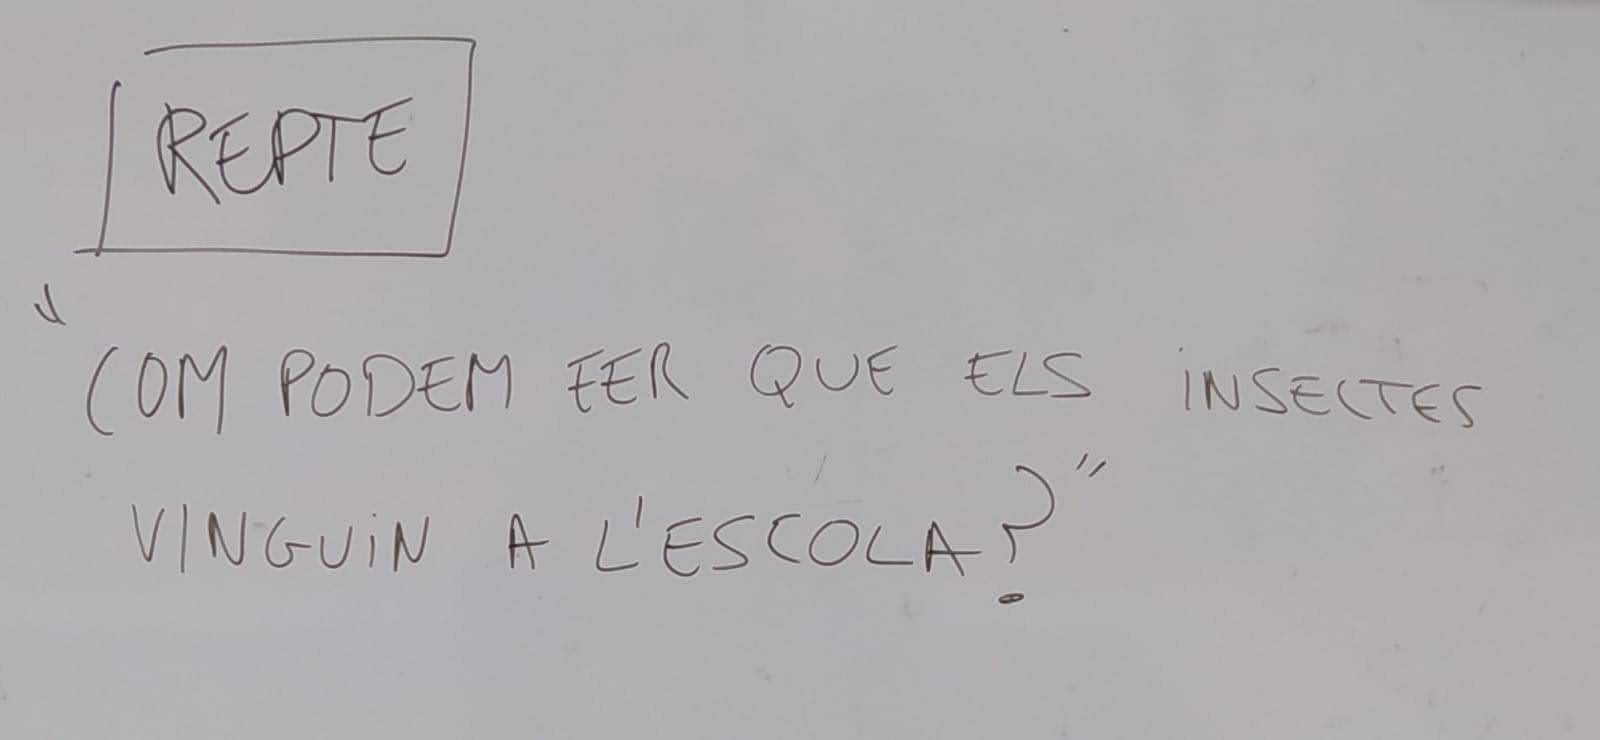 REPTE
"COM PODEM FER QUE ELS INSECTES
VINGUIN A L'ESCOLA?"